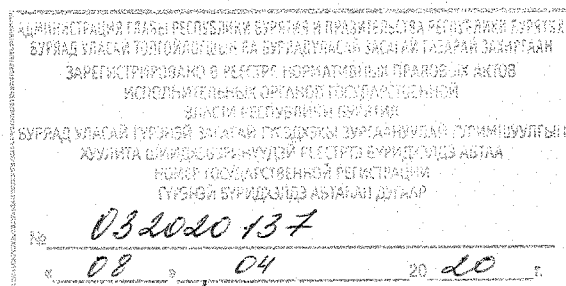 АДМИНИСТРАЦИЯ ГЛАВЫ РЕСПУБЛИКИ БУРЯТИЯ И ПРАВИТЕЛЬСТВА РЕСПУБЛИКИ БУРЯТИЯ
БУРЯАД УЛАСАЙ ЗАСАГАЙ ГАЗАРАЙ ЗАХИРГААН
ЗАРЕГИСТРИРОВАНО В РЕЕСТРЕ НОРМАТИВНЫХ ПРАВОВЫХ АКТОВ
ИСПОЛНИТЕЛЬНЫХ ОРГАНОВ ГОСУДАРСТВЕННОЙ
ВЛАСТИ РЕСПУБЛИКИ БУРЯТИЯ
БУРЯАД УЛАСАЙ ГҮРЭНЭЙ ЗАСАГАЙ
ХУУЛИТА БҮРИДХЭЛДЭ АБТАА
НОМЕР ГОСУДАРСТВЕННОЙ РЕГИСТРАЦИИ
ГҮРЭНЭЙ БҮРИДХЭЛДЭ АБТАҺАН ДУГААР
№ 032020 137
« 08 » 04 20 20 г.